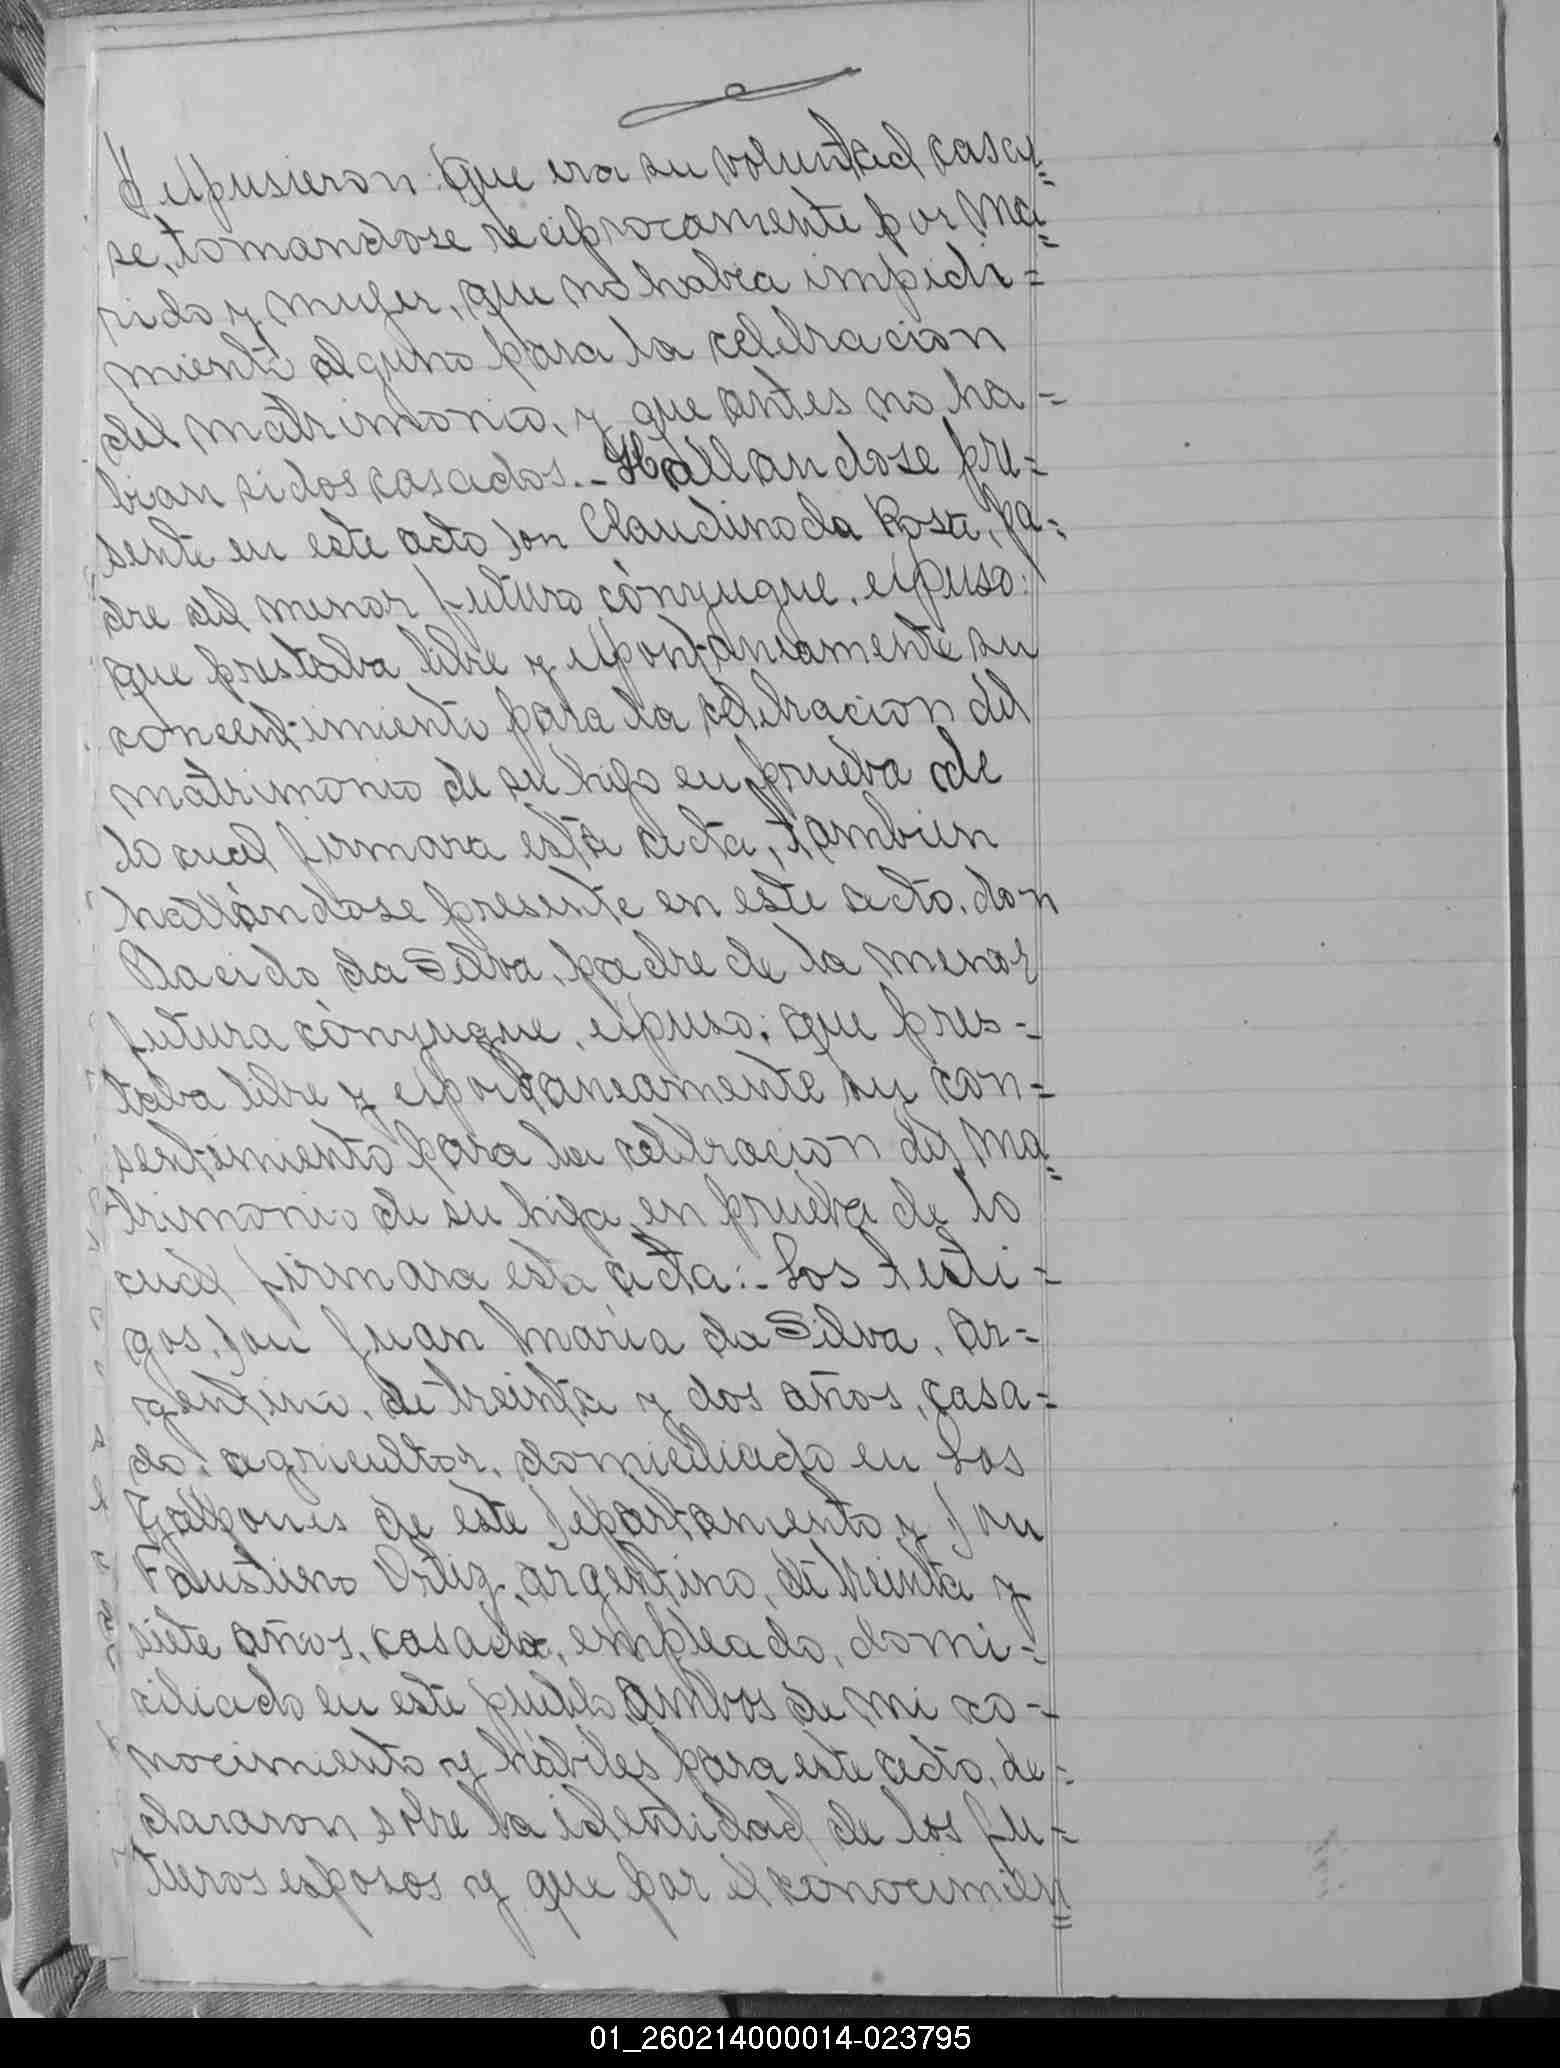 Y espusieron: Que era su voluntad casar=
se, tomandose reciprocamente por ma=
rido y muger, que no habia impedi=
miento alguno para la celebracion
del matrimonio, y que antes no ha=
bian sidos casados.- Hallandose pre=
sente en este acto Don Claudino da Rosa, pa=
dre del menor futuro cónyugue, espuso:
que prestaba libre y espontaneamente su
concentimiento para la celebracion del
matrimonio de su hijo en prueba de
lo cual firmara esta acta, tambien
hallándose presente en este acto, don
Placido da Silva, padre de la menor
futura cónyugue, espuso: que pres=
taba libre y espontaneamente su con=
sentimiento para la celebracion del ma=
trimonio de su hija en prueba de lo
cual firmara esta acta:- Los testi=
gos, Don Juan Maria da Silva, ar=
gentino, de treinta y dos años, casa=
do, agricultor, domiciliado en Los
Galpones de este Departamento y Don
Faustino Ortiz, argentino, de treinta y
siete años, casado, empleado, domi=
ciliado en este pueblo ambos de mi co=
nocimiento y hábiles para este acto, de=
clararon sobre la identidad de los fu=
turos esposos y que por el conocimien=
01_260214000014-023795